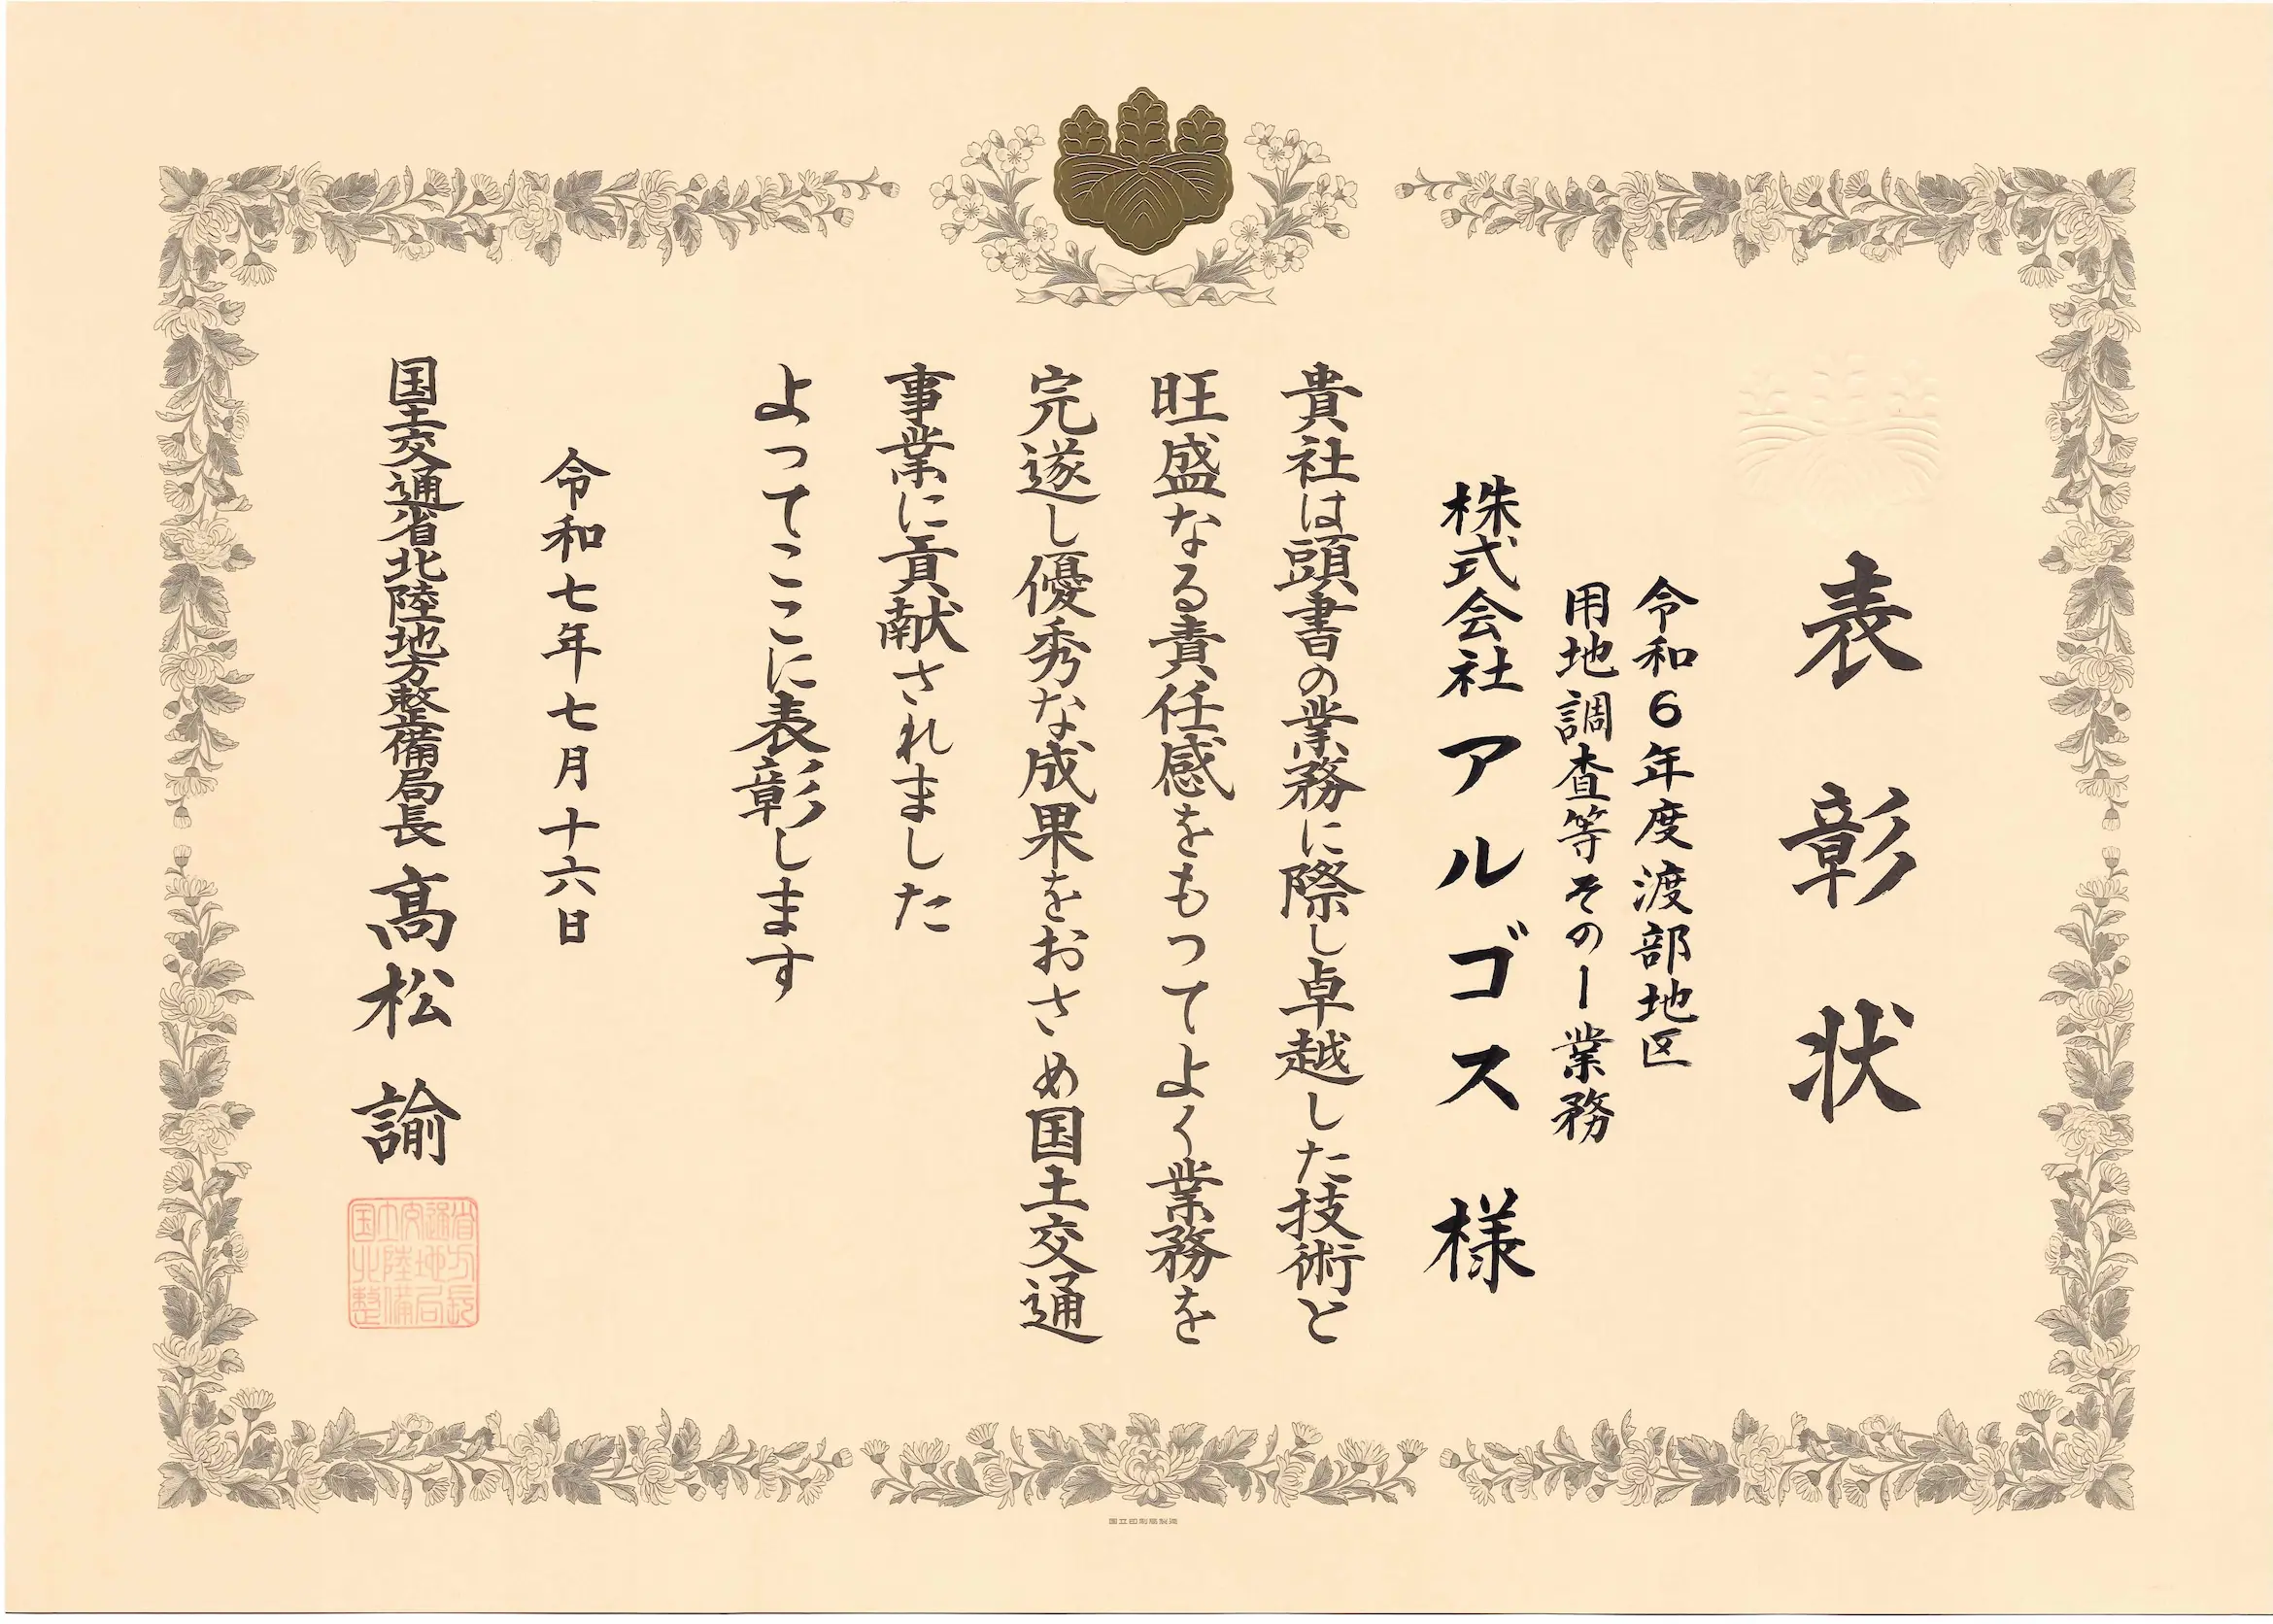 表彰状
令和6年度渡部地区
用地調査等その1業務
株式会社アルゴス 様
貴社は頭書の業務に際し卓越した技術と
旺盛なる責任感をもつてよく業務を
完遂し優秀な成果をおさめ国土交通
事業に貢献されました
よってここに表彰します
令和七年七月十六日
国土交通省北陸地方整備局長 髙松 諭
国土交通省
北陸地方
整備局長
国立印刷局製造